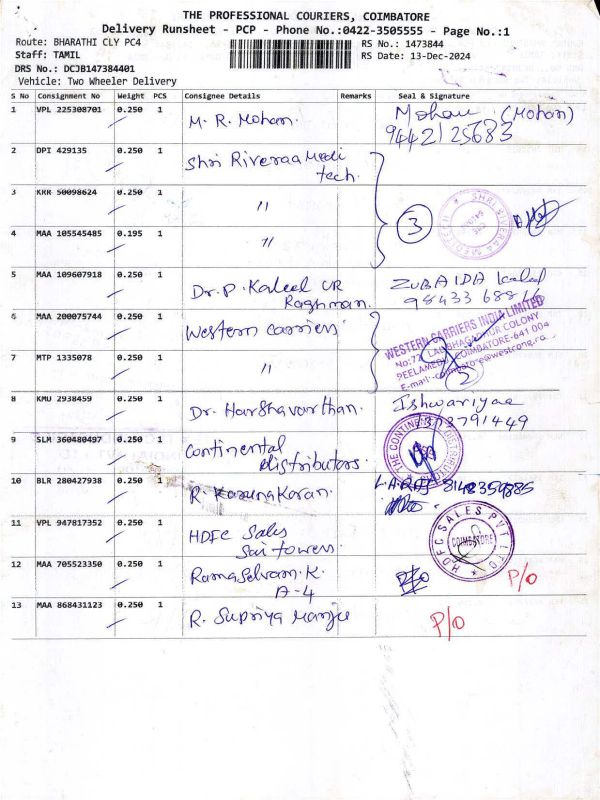 THE PROFESSIONAL COURIERS, COIMBATORE
Delivery Runsheet - PCP - Phone No.:0422-3505555 - Page No.:1
Route: BHARATHI CLY PC4 RS No.: 1473844
Staff: TAMIL RS Date: 13-Dec-2024
DRS No.: DCJB147384401
Vehicle: Two Wheeler Delivery
S No Consignment No Weight PCS Consignee Details Remarks Seal & Signature
1 VPL 225308701 0.250 1 M. R. Mohan. Mohan (Mohan)
9442125683
2 DPI 429135 0.250 1 Shri Riveraa Medi
tech.
3 KRR 50098624 0.250 1 〃
3 SHRI RIVERAA MEDITECH
4 MAA 105545485 0.195 1 〃
5 MAA 109607918 0.250 1 Dr. P. Kaleel UR ZUBAIDA
Raghman. 98433
6 MAA 200075744 0.250 1 Western carriers
WESTERN CARRIERS INDIA LIMITED
COLONY
PEELAMEDU, COIMBATORE-641 004
7 MTP 1335078 0.250 1 〃 2
8 KMU 2938459 0.250 1 Dr. Harshavarthan. Ishwariyaa
9 SLM 360480497 0.250 1 Continental
distributors.
THE CONTINENTAL DISTRIBUTORS
10 BLR 280427938 0.250 1 R. Karunakaran.
11 VPL 947817352 0.250 1 HDFC Sales
Sai towers.
HDFC SALES PVT LTD
COIMBATORE
12 MAA 705523350 0.250 1 RamaSelvam. K. P/O P/O
A-4
13 MAA 868431123 0.250 1 R. Supriya Manju P/O